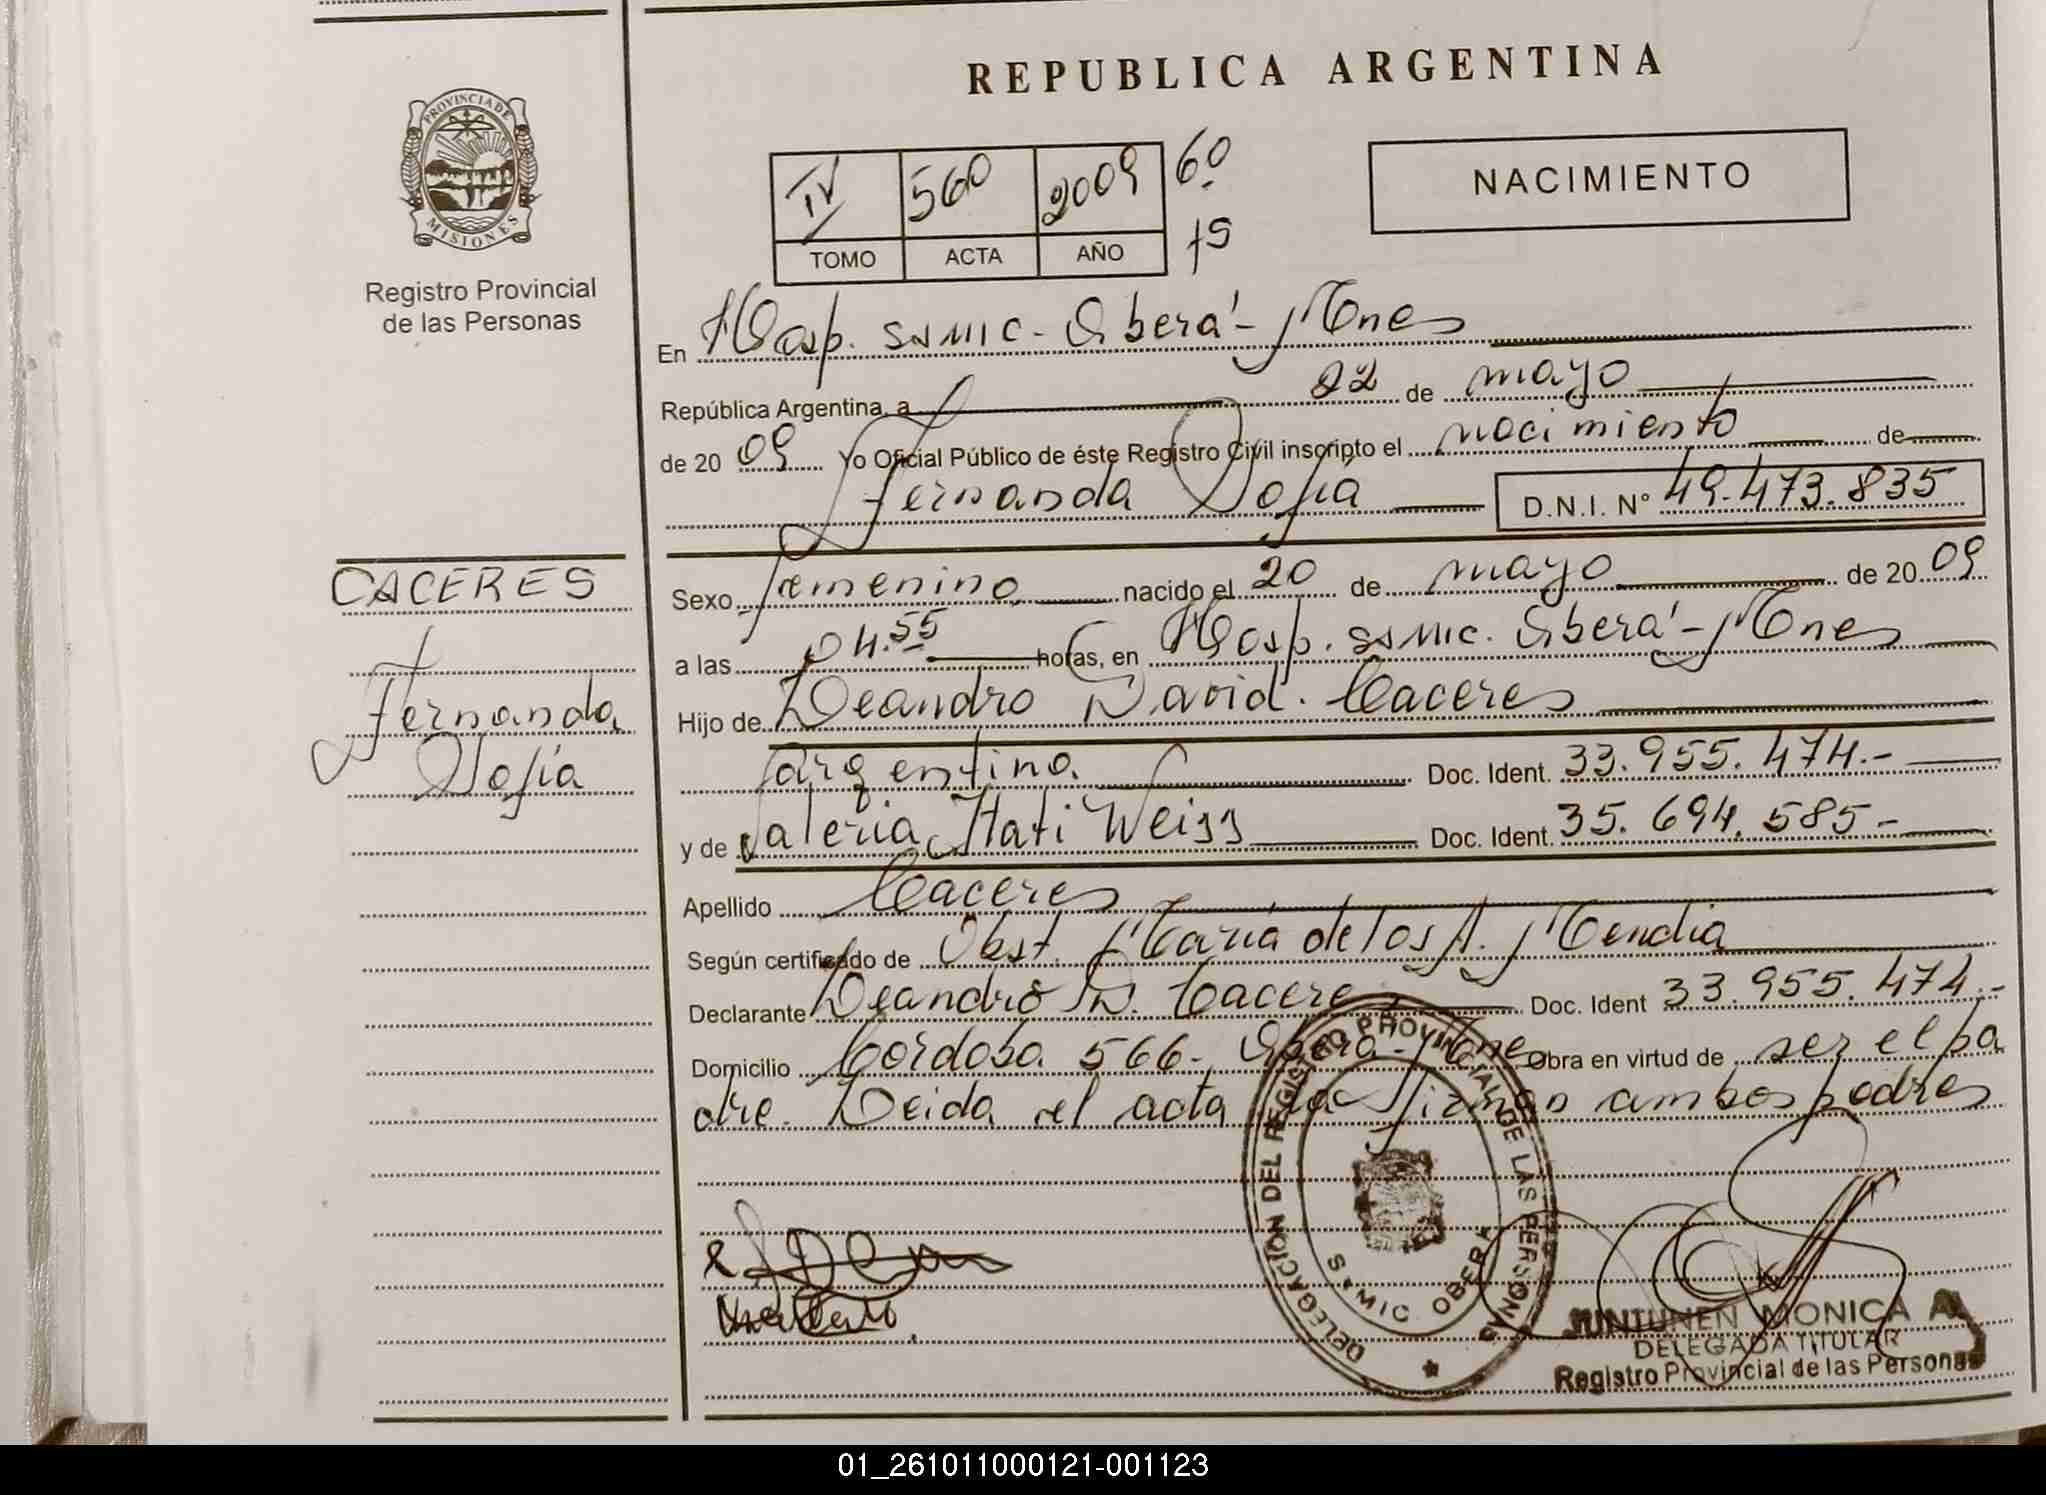 REPUBLICA ARGENTINA
PROVINCIA DE
MISIONES
Registro Provincial
de las Personas
IV 560 2009 60
TOMO ACTA AÑO 15
NACIMIENTO
En Hosp. SAMIC - Oberá - Mnes
República Argentina, a 22 de mayo
de 20 09 Yo Oficial Público de éste Registro Civil inscripto el nacimiento de
Fernanda Sofía D.N.I. Nº 49.473.835
CACERES
Fernanda
Sofía
Sexo femenino nacido el 20 de mayo de 20 09
a las 04.55 horas, en Hosp. SAMIC. Oberá - Mnes
Hijo de Leandro David. Caceres
argentino. Doc. Ident. 33.955.474.-
y de Valeria Itati Weiss Doc. Ident. 35.694.585-
Apellido Caceres
Según certificado de Obst. María de los A. Mendia
Declarante Leandro D. Caceres Doc. Ident 33.955.474.-
Domicilio Cordoba 566- Oberá - Mnes Obra en virtud de ser el pa
dre. Leida el acta la firman ambos padres
DELEGACION DEL REGISTRO PROVINCIAL DE LAS PERSONAS
SAMIC OBERA
JUNTUNEN MONICA A.
DELEGADA TITULAR
Registro Provincial de las Personas
01_261011000121-001123